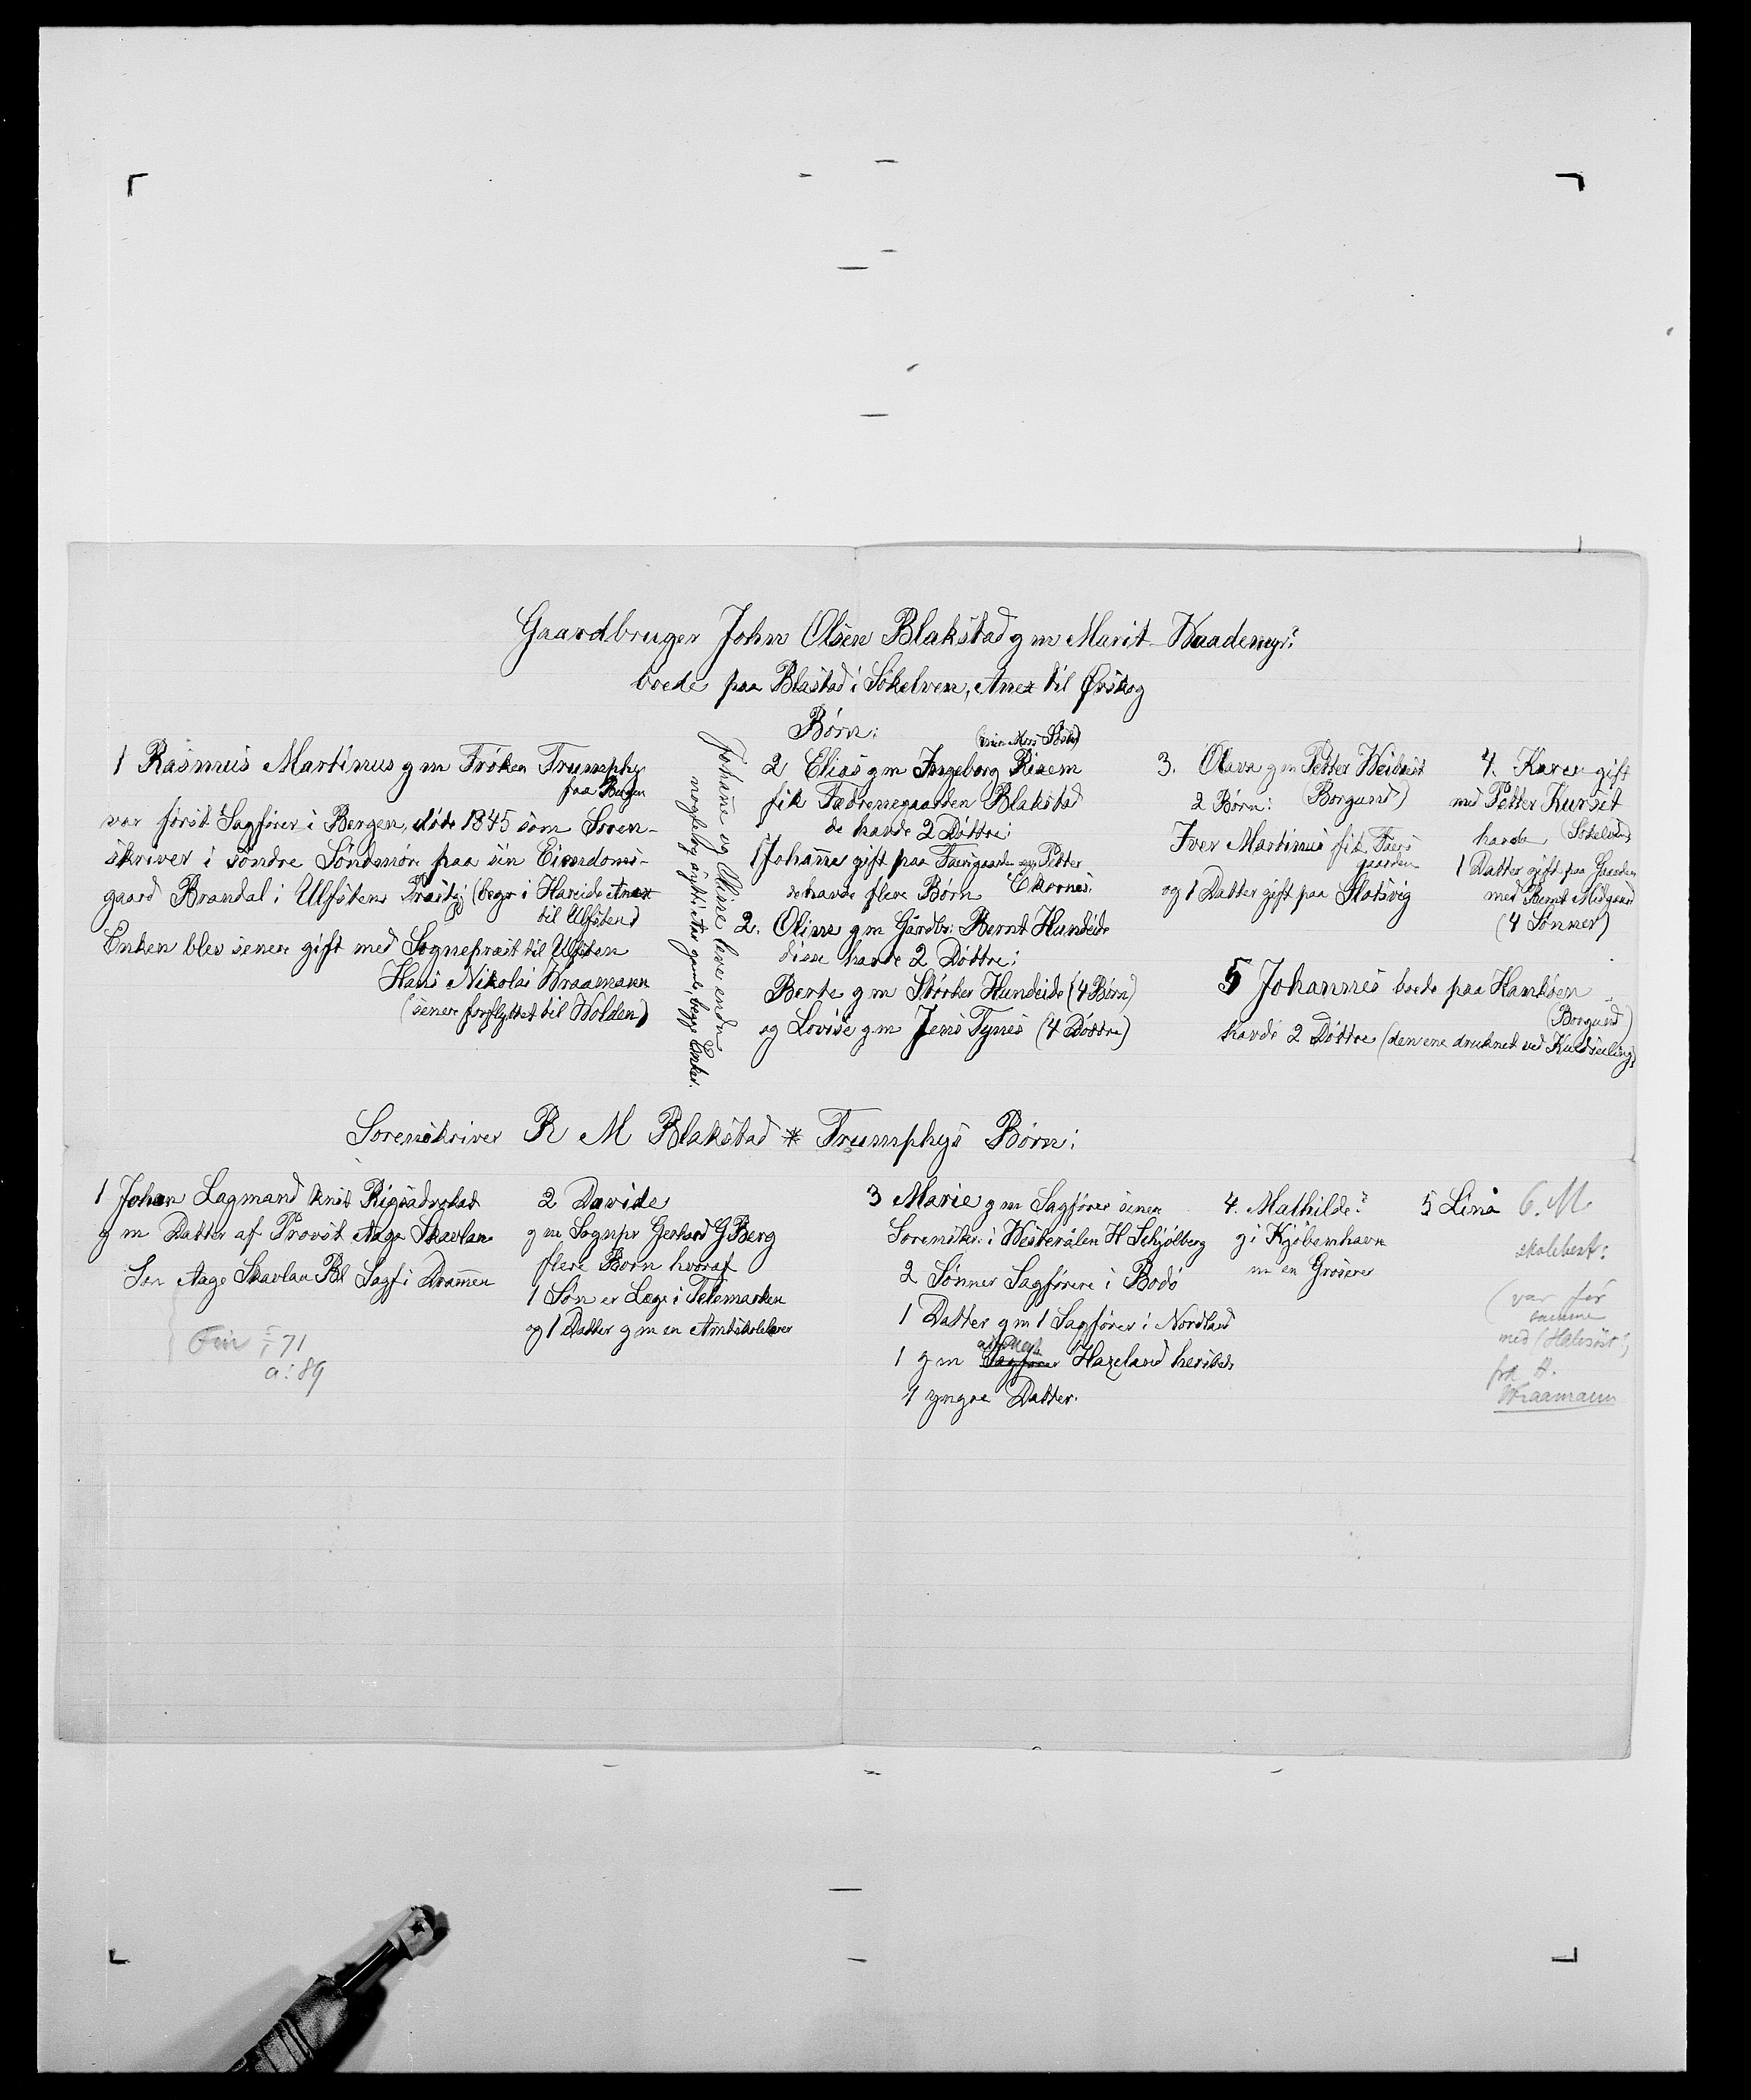 Gaardbruger John Olsen Blakstad g m Marit Waademyr?
boede paa Blastad i Sökelven, Anex til Ørskog
Börn:
1 Rasmus Martinus g m Fröken Trumphy
fra Bergen
var först Sagförer i Bergen, döde 1845 som Soren-
skriver i söndre Söndmör paa sin Eiendoms-
gaard Brandal i Ulfstens Prästgj (begr i Hareide Anex
til Ulfsten)
Enken blev senere gift med Sogneprest til Ulfsten
Hans Nikolai Wraamann
(senere forflyttet til Wolden)
Johanne og Oline leve endnu
nogle og ægti Aar gamle, begge Enker.
(min Mors Söster)
2 Elias g m Ingeborg Rixem
fik Fædrenegaarden Blakstad
de havde 2 Döttre:
1 Johanne gift paa Faersgaarden m Petter
Ekornes.
de havde flere Börn
2. Oline g m Gårdbr: Bernt Hundeide
disse havde 2 Döttre:
Berte g m Störker Hundeide (4 Börn)
og Lovise g m Jens Tynes (4 Döttre)
3. Olava g m Petter Weibust
2 Börn: (Borgund)
Iver Martinus fik Faers
gaarden
og 1 Datter gift paa Flotsvig
4. Karen gift
med Petter Kurset
havde (Sökelven)
1 Datter gift paa Gaarden
med Bernt Midgaard
(4 Sönner)
5 Johannes boede paa Humlöen
(Borgund)
havde 2 Döttre (den ene druknet ved Kuldseiling)
Sorenskriver R M Blakstad * Trumphys Börn:
1 Johan Lagmand Const Rigsadvokat
g m Datter af Provst Aage Skavlan
Sön Aage Skavlan Bl Sagf i Dramen
71
a: 89
2 Davide
g m Sognepr Gerhard G Berg
flere Born hvoraf
1 Sön er Læge i Telemarken
og 1 Datter g m en Amtskolelærer
3 Marie g m Sagförer senere
Sorenskr: i Westerålen H Schjölberg
2 Sönner Sagförere i Bodö
1 Datter g m 1 Sagförer i Nordland
1 g m Sagförer Hazeland hersteds
1 yngre Datter.
4. Mathilde?
g i Kjöbenhavn
m en Groserer
5 Lina
6. M
skolebest:
(var før
samme
med (Halvsöst:)
fra H.
Wraamann